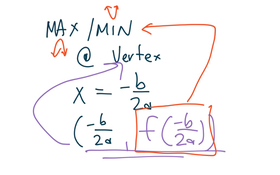 MAX/MIN
@ Vertex
x = -b/2a
(-b/2a, f(-b/2a))